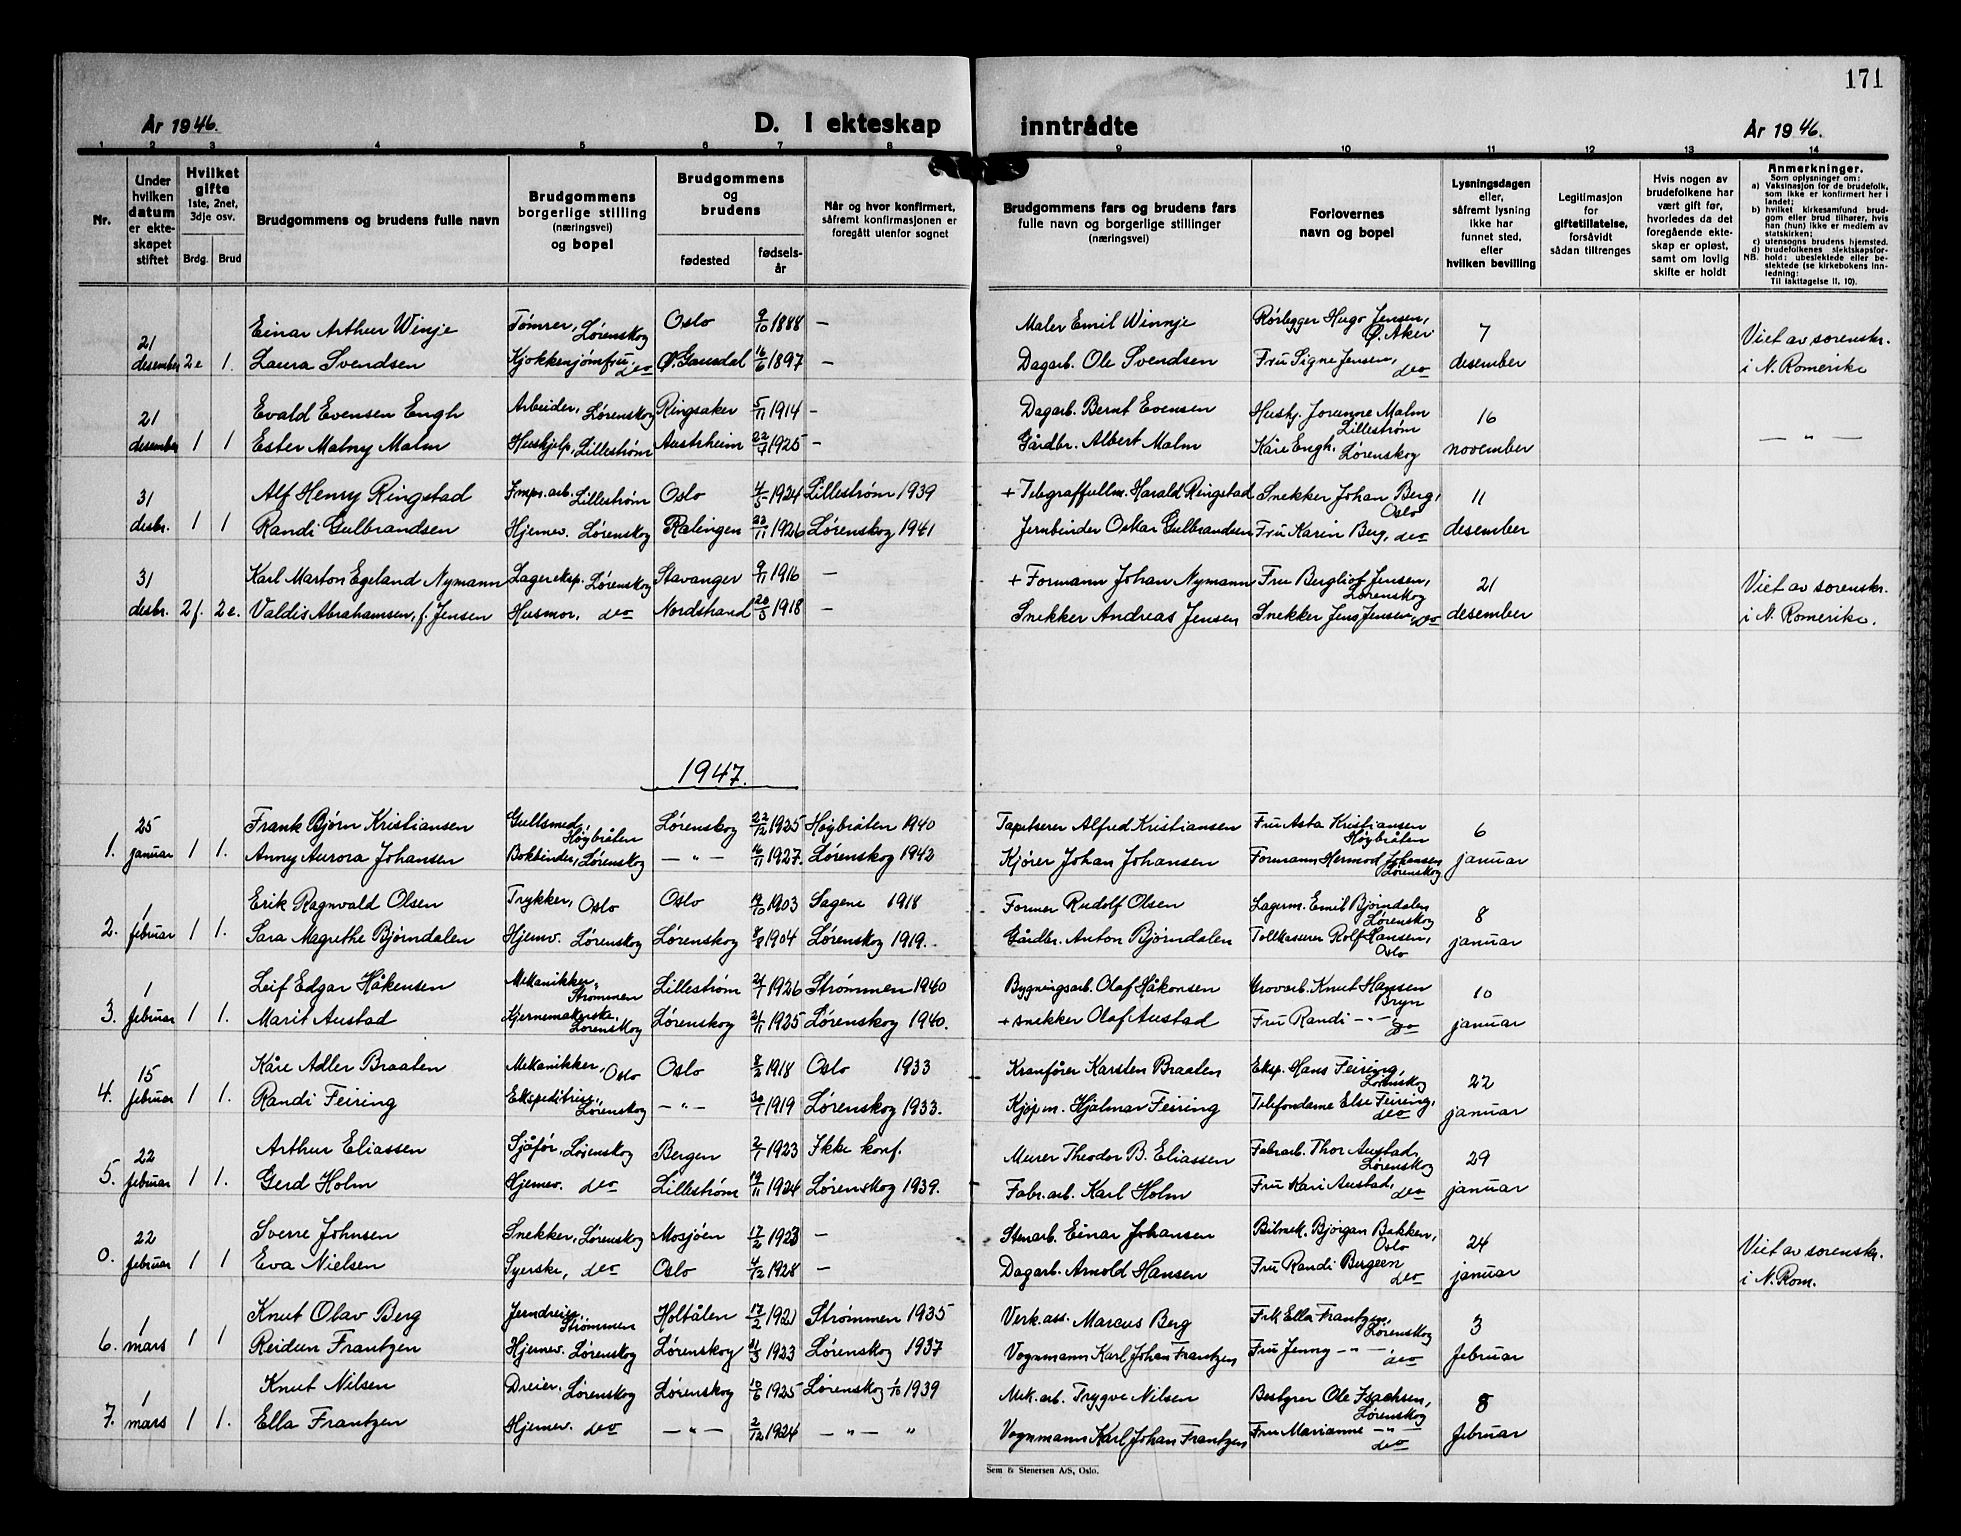 171
År 1946.
D. I ekteskap inntrådte
År 1946.
1 2 3 4 5 6 7 8 9 10 11 12 13 14
Nr.
Under hvilken datum er ekteskapet stiftet
Hvilket gifte 1ste, 2net, 3dje osv.
Brdg. Brud
Brudgommens og brudens fulle navn
Brudgommens borgerlige stilling (næringsvei) og bopel
Brudgommens og brudens
fødested
fødsels-år
Når og hvor konfirmert, såfremt konfirmasjonen er foregått utenfor sognet
Brudgommens fars og brudens fars fulle navn og borgerlige stillinger (næringsvei)
Forlovernes navn og bopel
Lysningsdagen eller, såfremt lysning ikke har funnet sted, eller hvilken bevilling
Legitimasjon for giftetillatelse, forsåvidt sådan tiltrenges
Hvis nogen av brudefolkene har vært gift før, hvorledes da det foregående ekteskap er opløst, samt om lovlig skifte er holdt
Anmerkninger.
Som oplysninger om:
a) Vaksinasjon for de brudefolk, som ikke er konfirmert her i landet;
b) hvilket kirkesamfund brudgom eller brud tilhører, hvis han (hun) ikke er medlem av statskirken;
c) utensogns brudens hjemsted.
d) brudefolkenes slektskapsforhold: ubeslektede eller beslektede (se kirkebokens innledning:
NB.
Til iakttagelse II, 10).
21 Einar Arthur Winje Tømrer, Lørenskog Oslo 9/10 1888 — Maler Emil Winnje Rørlegger Hugo Jensen, Ø. Aker 7 Viet av sorenskr.
desember 2e 1. Laura Svendsen Kjøkkenjomfru, do Ø. Gausdal 16/6 1897 — Dagarb. Ole Svendsen Fru Signe Jensen, do desember i N. Romerike
21 Evald Evensen Engh Arbeider, Lørenskog Ringsaker 5/11 1914 — Dagarb. Bernt Evensen Hushj. Jorunne Malm Lillestrøm 16
desember 1 1 Ester Malny Malm Hushjelp, Lillestrøm Austrheim 22/7 1925 — Gårdbr. Albert Malm Kåre Engh, Lørenskog november — " —
31 Alf Henry Ringstad Impr. arb. Lillestrøm Oslo 4/5 1924 Lillestrøm 1939 + Telegraffullm. Harald Ringstad Snekker Johan Berg, Oslo 11
desbr. 1 1 Randi Gulbrandsen Hjemev. Lørenskog Rælingen 23/11 1926 Lørenskog 1941 Jernbinder Oskar Gulbrandsen Fru Karin Berg, do desember
31 Karl Marton Egeland Nymann Lagereksp. Lørenskog Stavanger 9/11 1916 — + Formann Johan Nymann Fru Bergliot Jensen, Lørenskog 21 Viet av sorenskr.
desbr. 2f. 2e. Valdis Abrahamsen, f. Jensen Husmor, do Nordstrand 20/5 1918 — Snekker Andreas Jensen Snekker Jens Jensen, do desember i N. Romerike.
1947.
25 Frank Bjørn Kristiansen Gullsmed, Høybråten Lørenskog 22/12 1925 Høybråten 1940 Tapetserer Alfred Kristiansen Fru Asta Kristiansen Høybråten 6
1. januar 1 1. Anny Aurora Johansen Bokbinder, Lørenskog — " — 16/11 1927. Lørenskog 1942 Kjører Johan Johansen Formann Hermod Johansen Lørenskog januar
1 Erik Ragnvald Olsen Trykker, Oslo Oslo 1903 Sagene 1918 Former Rudolf Olsen Lagerm. Emil Bjørndalen Lørenskog 8
2. februar 1 1. Sara Magrethe Bjørndalen Hjemv. Lørenskog Lørenskog 8/8 1904 Lørenskog 1919. Gårdbr. Anton Bjørndalen Tollkaserer Rolf Hansen, Oslo januar
1 Leif Edgar Håkensen Mekanikker, Strømmen Lillestrøm 21/7 1926 Strømmen 1940 Bygningsarb. Olaf Håkonsen Grovarb. Knut Hansen Bryn 10
3. februar 1 1. Marit Austad Kjernemakerske, Lørenskog Lørenskog 21/11 1925 Lørenskog 1940. + snekker Olaf Austad Fru Randi — " — do januar
15 Kåre Adler Braaten Mekanikker, Oslo Oslo 8/2 1918 Oslo 1933 Kranfører Karsten Braaten Eksp. Hans Feiring, Lørenskog 22
4. februar 1 1. Randi Feiring Ekspeditrise, Lørenskog — " — 30/1 1919 Lørenskog 1933. Kjøpm. Hjalmar Feiring Telefondame Else Feiring, do januar
22 Arthur Eliassen Sjåfør, Lørenskog Bergen 2/1 1923 Ikke konf. Murer Theodor B. Eliassen Fabrarb. Thor Austad, Lørenskog 29
5. februar 1 1. Gerd Holm Hjemev. do Lillestrøm 19/11 1924 Lørenskog 1939. Fabr.arb. Karl Holm Fru Kari Austad, do januar
22 Sverre Johnsen Snekker, Lørenskog Mosjøen 17/2 1923 — Stenarb. Einar Johansen Bilmek. Bjørgan Bakken, Oslo 24 Viet av sorenskr.
0. februar 1 1 Eva Nielsen Syerske, do Oslo 4/12 1928 — Dagarb. Arnold Hansen Fru Randi Bergeen do januar i N. Rom.
1 Knut Olav Berg Jerndreier, Strømmen Holtålen 17/2 1921 Strømmen 1935 Verk.ass. Marcus Berg Frk Ella Frantzen, Lørenskog 3
6. mars 1 1 Reidun Frantzen Hjemev. Lørenskog Lørenskog 21/3 1923 Lørenskog 1937 Vognmann Karl Johan Frantzen Fru Jenny — " — do februar
1 Knut Nilsen Dreier, Lørenskog Lørenskog 10/6 1925 Lørenskog 1/10 1939 Mek. arb. Trygve Nilsen Bestyrer Ole Isachsen, Lørenskog 8
7. mars 1 1. Ella Frantzen Hjemev. do — " — 2/12 1924 — " — " Vognmann Karl Johan Frantzen Fru Marianne — " — do februar
Sem & Stenersen A/S, Oslo.